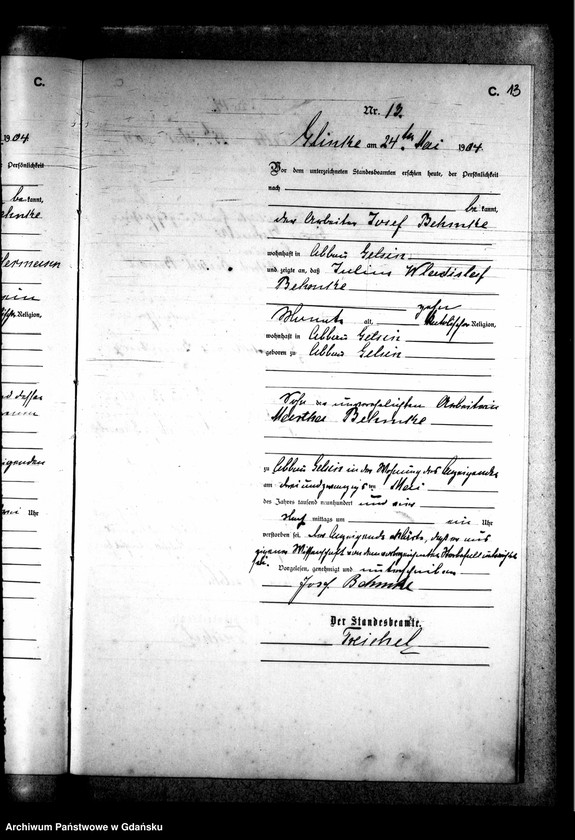 C.
1904
Persönlichkeit
be kannt,
Religion,
Uhr
C. 13
Nr. 12.
Glinke am 24ten Mai 1904
Vor dem unterzeichneten Standesbeamten erschien heute, der Persönlichkeit
nach
be kannt,
der Arbeiter Josef Behmke
wohnhaft in Abbau Gelsin
und zeigte an, daß Julius Wladislaf
Behmke
zehn
Monate alt, katholischer Religion,
wohnhaft in Abbau Gelsin
geboren zu Abbau Gelsin
Sohn der unverehelichten Arbeiterin
Martha Behmke
zu Abbau Gelsin in der Wohnung des Anzeigenden
am dreiundzwanzigsten Mai
des Jahres tausend neunhundert und vier
Nach mittags um ein Uhr
verstorben sei. Der Anzeigende erklärte, daß er aus
eigener Wissenschaft von dem Sterbefall unterrichtet
sei.
Vorgelesen, genehmigt und unterschrieben
Josef Behmke
Der Standesbeamte.
Treichel
Archiwum Państwowe w Gdańsku